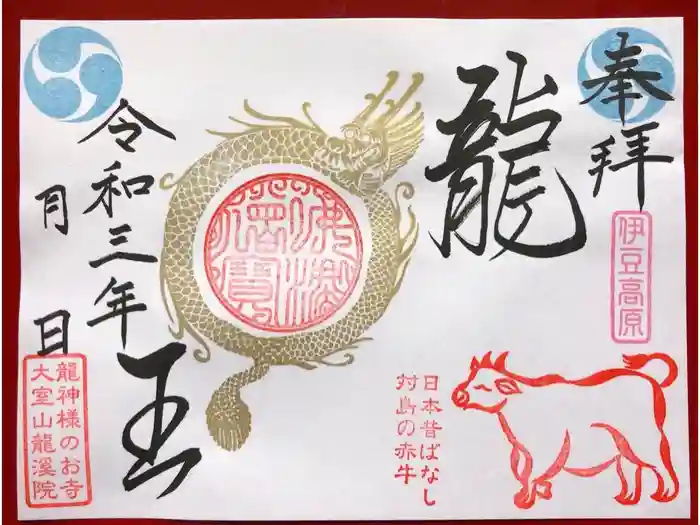 奉拝
伊豆高原
龍
日本昔ばなし
対島の赤牛
佛法僧寶
令和三年
月 日
王
龍神様のお寺
大室山龍溪院